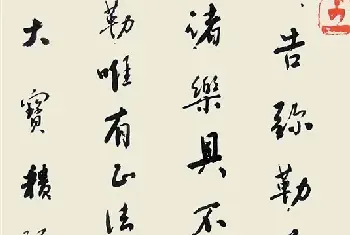 告彌勒
諸樂具不
勒唯有正法
大寶積